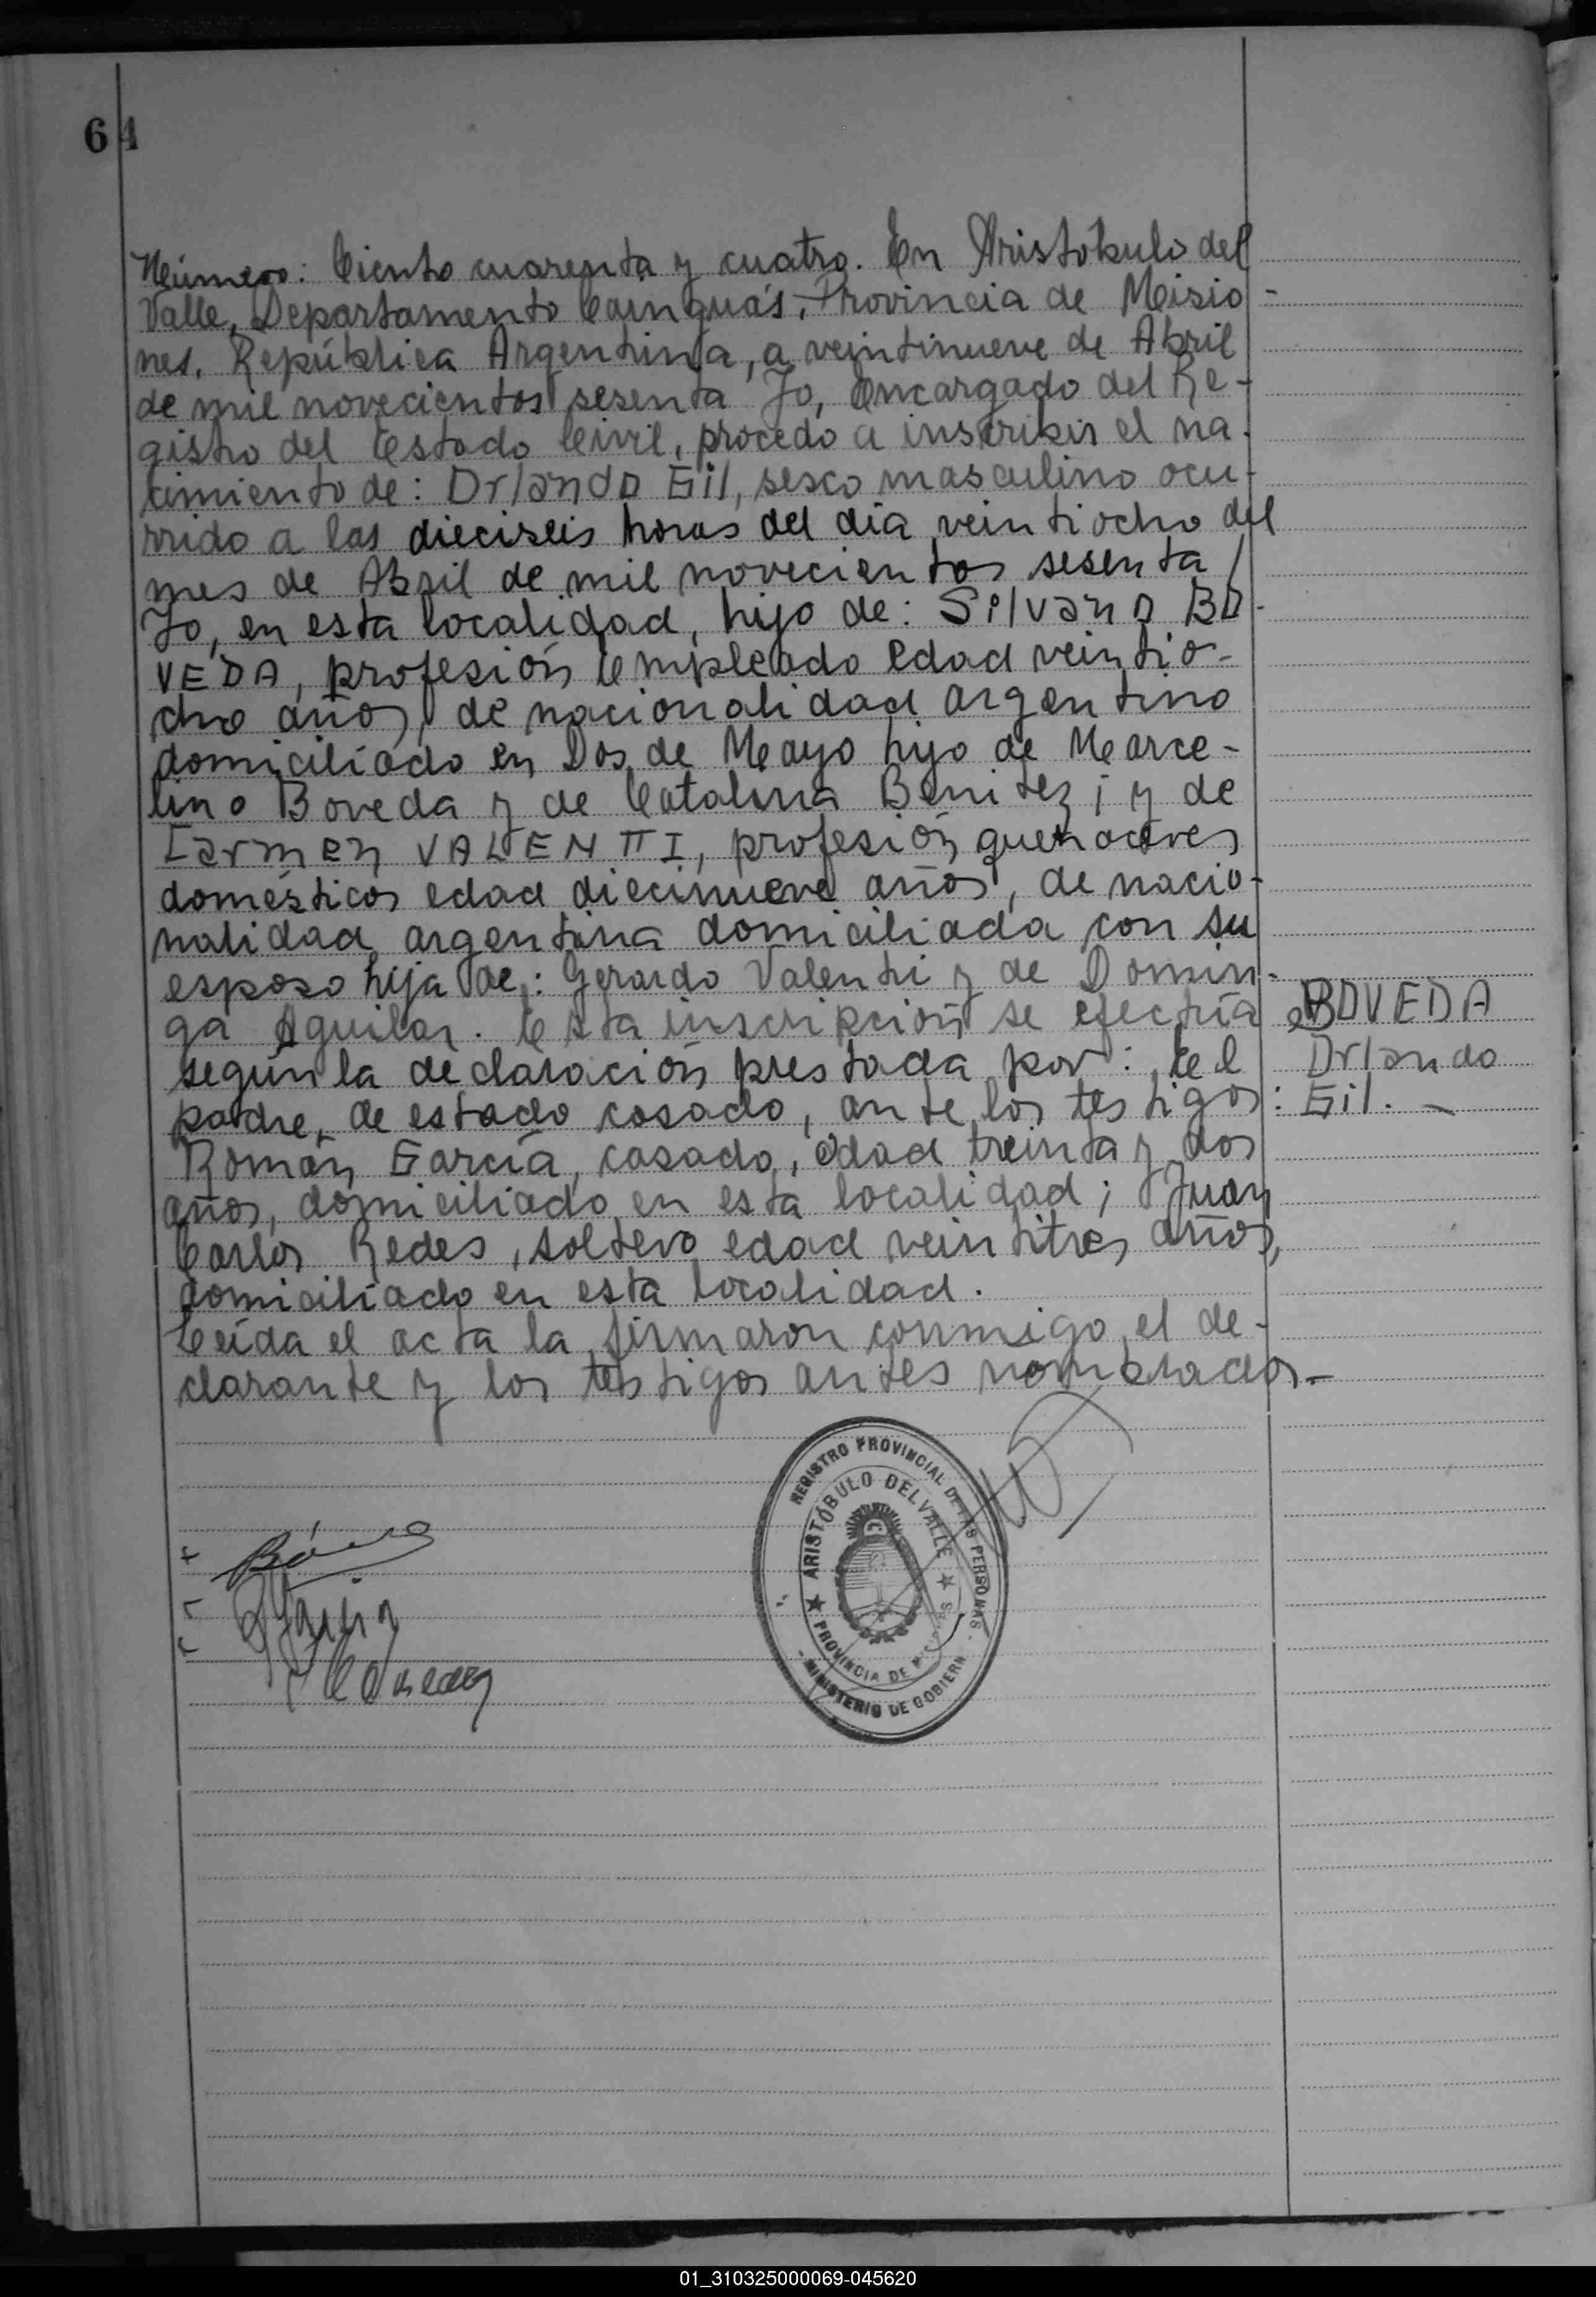 64
Número: Ciento cuarenta y cuatro. En Aristóbulo del
Valle, Departamento Cainguás, Provincia de Misio-
nes, República Argentina, a veintinueve de Abril
de mil novecientos sesenta Yo, Encargado del Re-
gistro del Estado Civil, procedo a inscribir el na-
cimiento de: Orlando Gil, sexo masculino ocu-
rrido a las dieciseis horas del día veintiocho del
mes de Abril de mil novecientos sesenta /
Yo, en esta localidad, hijo de: Silvano BO-
VEDA, profesión Empleado edad veintio-
cho años, de nacionalidad argentino
domiciliado en Dos de Mayo hijo de Marce-
lino Boveda y de Catalina Benitez; y de
Carmen VALENTTI, profesión quehaceres
domésticos edad diecinueve años, de nacio-
nalidad argentina domiciliada con su
esposo hija de: Gerardo Valenti y de Domin-
ga Aguilar. Esta inscripción se efectúa
según la declaración prestada por: El
padre, de estado casado, ante los testigos:
Román García, casado, edad treinta y dos
años, domiciliado en esta localidad; Juan
Carlos Redes, soltero edad veintitres años,
domiciliado en esta localidad.
Leída el acta la firmaron conmigo el de-
clarante y los testigos antes nombrados.-
BOVEDA
Orlando
Gil. -
REGISTRO PROVINCIAL DE LAS PERSONAS
ARISTÓBULO DEL VALLE
PROVINCIA DE MISIONES
MINISTERIO DE GOBIERN
01_310325000069-045620